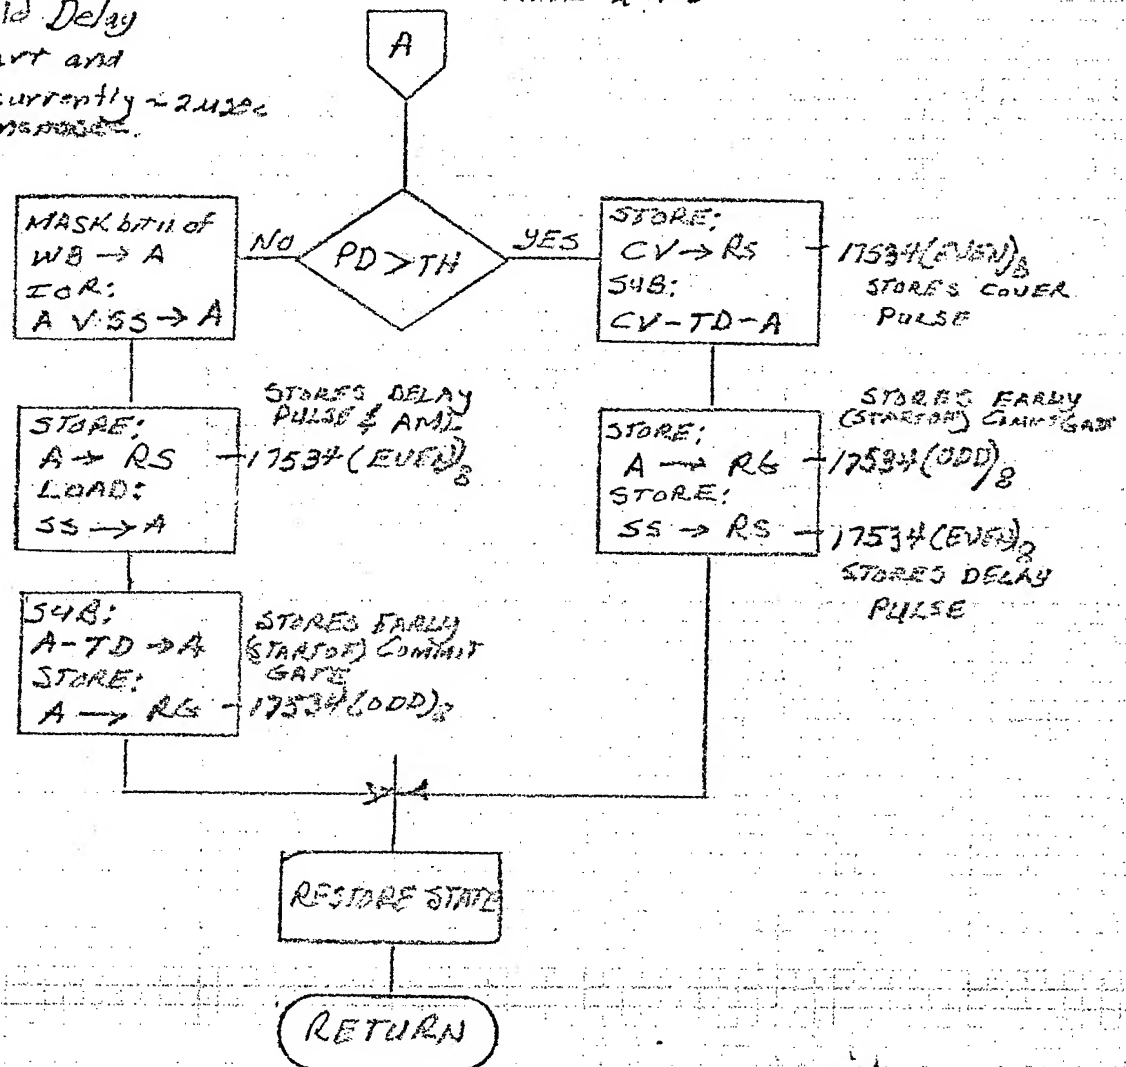 Delay
and
currently ~ 2 usec
A
PD > TH
NO
YES
MASK bit 11 of
WB → A
IOR:
A V SS → A
STORE:
CV → RS
SUB:
CV - TD - A
17534 (EVEN)8
STORES COVER
PULSE
STORE:
A → RS
LOAD:
SS → A
STORES DELAY
PULSE & AML
17534 (EVEN)8
STORE:
A → RG
STORE:
SS → RS
STORES EARLY
(START OF) COMMIT GATE
17534 (ODD)8
17534 (EVEN)8
STORES DELAY
PULSE
SUB:
A - TD → A
STORE:
A → RG
STORES EARLY
(START OF) COMMIT
GATE
17534 (ODD)8
RESTORE STATE
RETURN